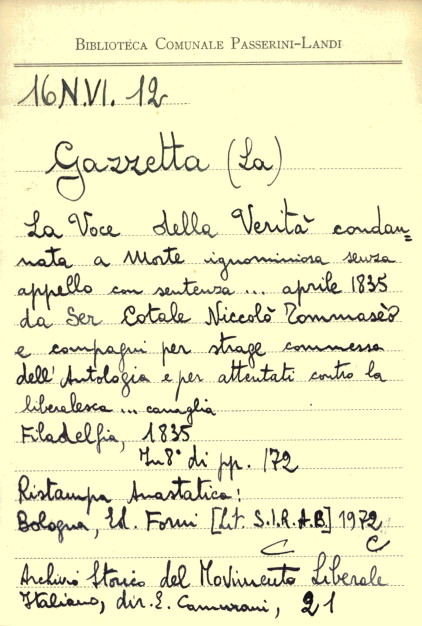 BIBLIOTECA COMUNALE PASSERINI-LANDI
16 N.VI. 12
Gazzetta (La)
La Voce della Verità condan=
nata a Morte ignominiosa senza
appello con sentenza ... aprile 1835
da Ser Cotale Niccolò Tommasèo
e compagni per strage commessa
dell'Antologia e per attentati contro la
liberalesca ... canaglia
Filadelfia, 1835
In 8° di pp. 172
Ristampa Anastatica:
Bologna, Ed. Forni [Lit. S.I.R.A.B.] 1972
C C
Archivio Storico del Movimento Liberale
Italiano, dir. E. Camurani, 21